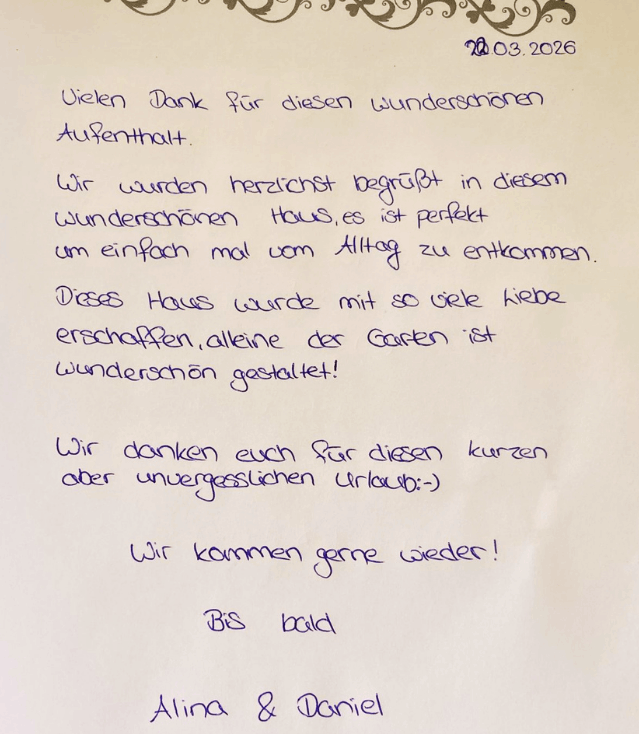 22.03.2026
Vielen Dank für diesen wunderschönen
Aufenthalt.
Wir wurden herzlichst begrüßt in diesem
wunderschönen Haus, es ist perfekt
um einfach mal vom Alltag zu entkommen.
Dieses Haus wurde mit so viele Liebe
erschaffen, alleine der Garten ist
wunderschön gestaltet!
Wir danken euch für diesen kurzen
aber unvergesslichen Urlaub:-)
Wir kommen gerne wieder!
Bis bald
Alina & Daniel